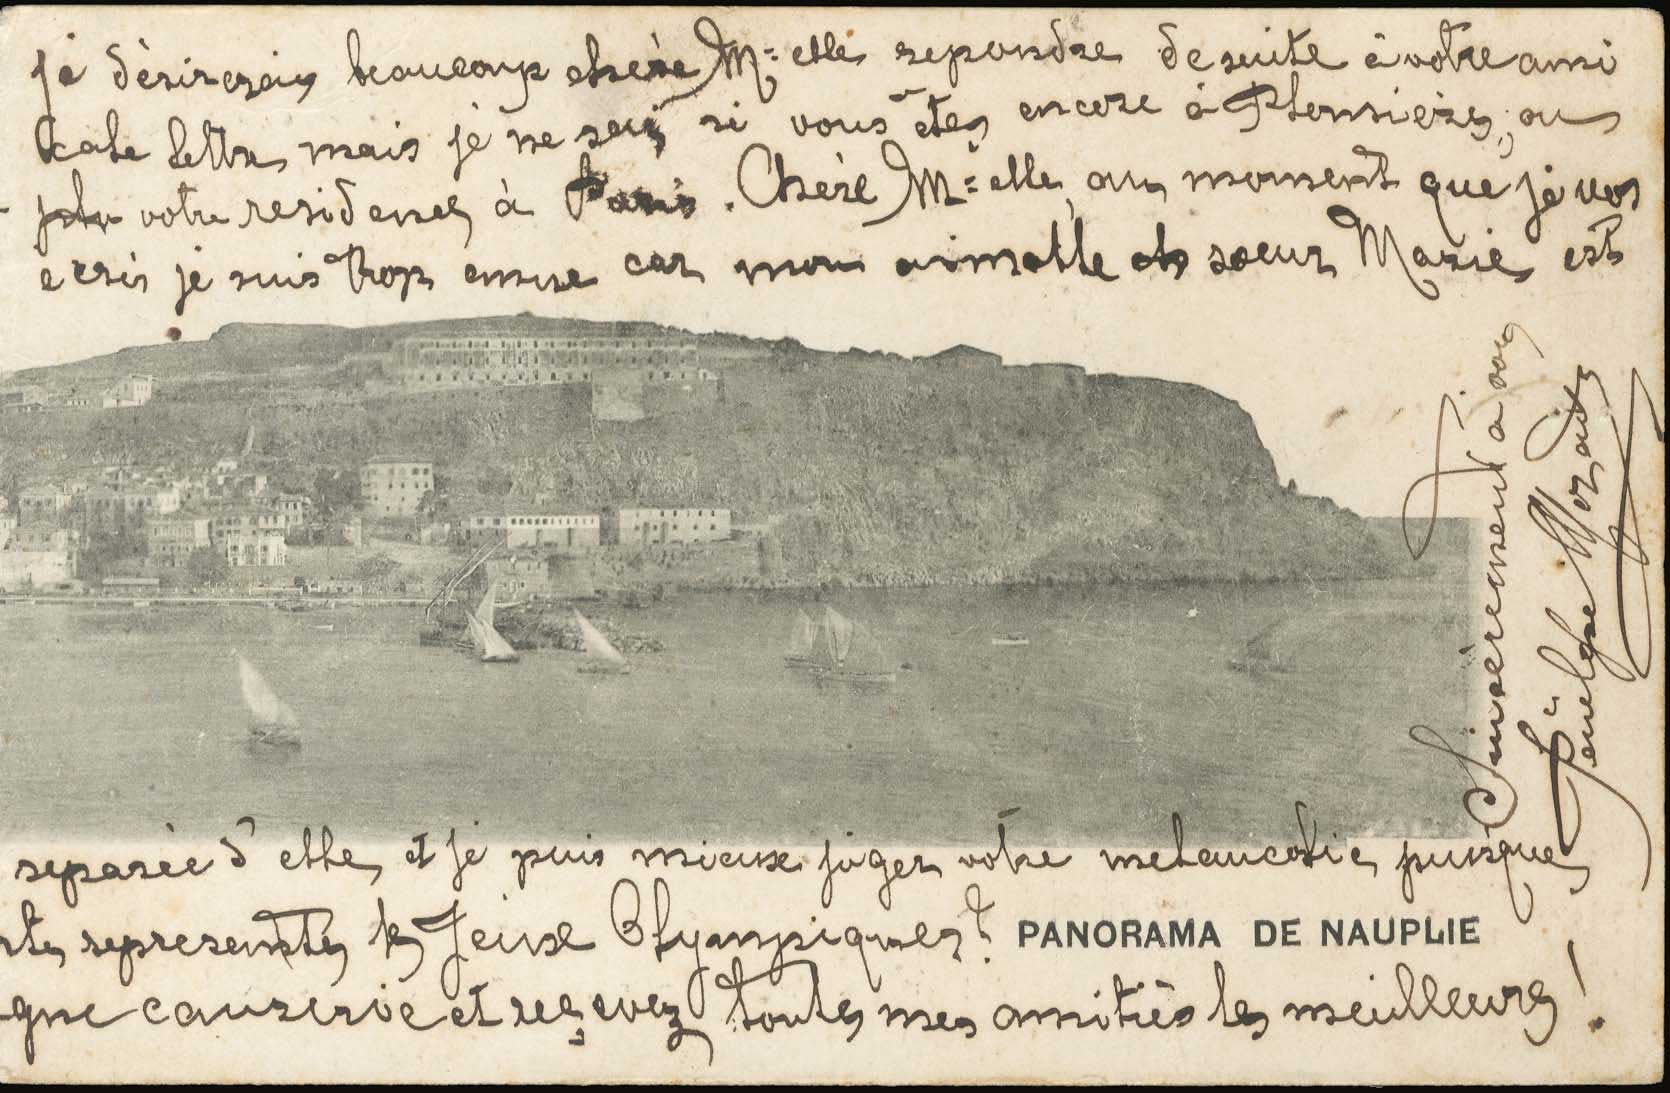 je dèsirerais beaucoup chère M:elle repondre de suite à votre ami
cale lettre, mais je ne sais si vous êtes encore à Plomsières, ou
votre residence à Paris. Chère M:elle, au moment que je vos
ecris je suis trop emue car mon aimable soeur Marie est
separèe d'elle, et je puis mieux juger votre melancolie, puisque
representés les Jeux Olympiques?
PANORAMA DE NAUPLIE
que causerie et reçevez toutes mes amitiès les meilleurs!
Sincerement à vous
Penelope